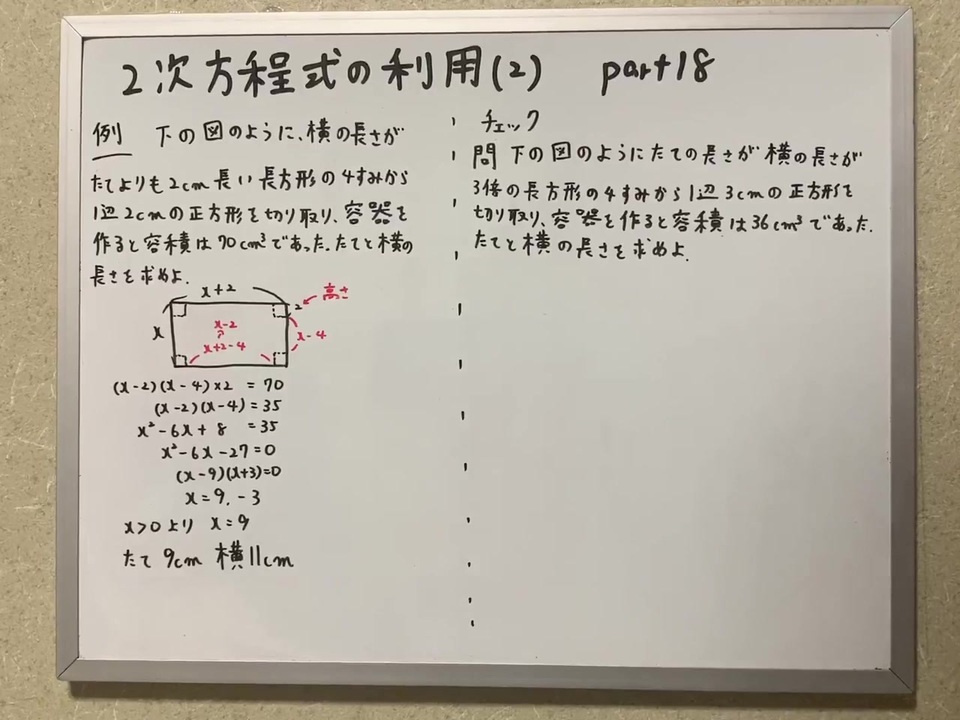 2次方程式の利用(2) part18
例 下の図のように、横の長さが
たてよりも2cm長い長方形の4すみから
1辺2cmの正方形を切り取り、容器を
作ると容積は70cm³であった。たてと横の
長さを求めよ。
x+2
2 ← 高さ
x
x-2
x-4
x+2-4
(x-2)(x-4)×2 = 70
(x-2)(x-4)=35
x²-6x+8 =35
x²-6x-27=0
(x-9)(x+3)=0
x=9,-3
x>0より x=9
たて 9cm 横11cm
チェック
問 下の図のようにたての長さが横の長さが
3倍の長方形の4すみから1辺3cmの正方形を
切り取り、容器を作ると容積は36cm³であった。
たてと横の長さを求めよ。